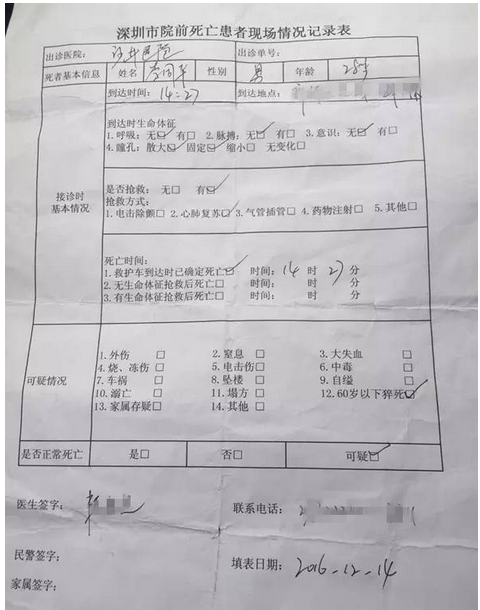 深圳市院前死亡患者现场情况记录表
出诊医院: 出诊单号:
死者基本信息 姓名 性别 男 年龄 28岁
到达时间: 14:27 到达地点:
到达时生命体征
1.呼吸: 无☑ 有□ 2.脉搏: 无☑ 有□ 3.意识: 无☑ 有□
4.瞳孔: 散大☑ 固定☑ 缩小□ 无变化□
接诊时基本情况
是否抢救: 无□ 有☑
抢救方式:
1.电击除颤□ 2.心肺复苏☑ 3.气管插管□ 4.药物注射□ 5.其他□
死亡时间:
1.救护车到达时已确定死亡☑ 时间: 14 时 27 分
2.无生命体征抢救后死亡□ 时间: 时 分
3.有生命体征抢救后死亡□ 时间: 时 分
可疑情况
1.外伤 □ 2.窒息 □ 3.大失血 □
4.烧、冻伤 □ 5.电击伤 □ 6.中毒 □
7.车祸 □ 8.坠楼 □ 9.自缢 □
10.溺亡 □ 11.塌方 □ 12.60岁以下猝死☑
13.家属存疑 □ 14.其他 □
是否正常死亡 是□ 否□ 可疑☑
医生签字: 联系电话:
民警签字:
填表日期: 2016-12-14
家属签字: